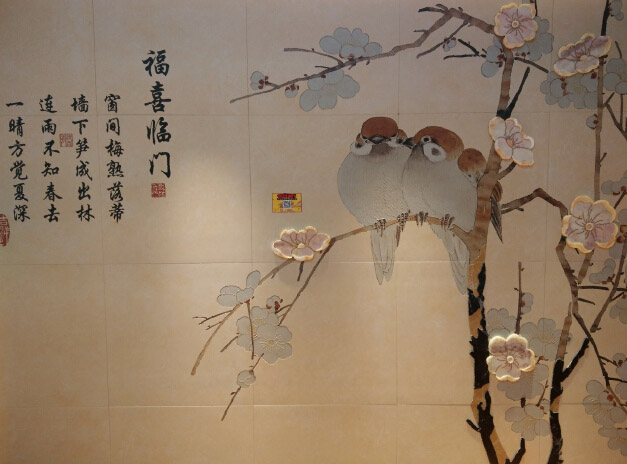 福喜临门
窗间梅熟落蒂
墙下笋成出林
连雨不知春去
一晴方觉夏深